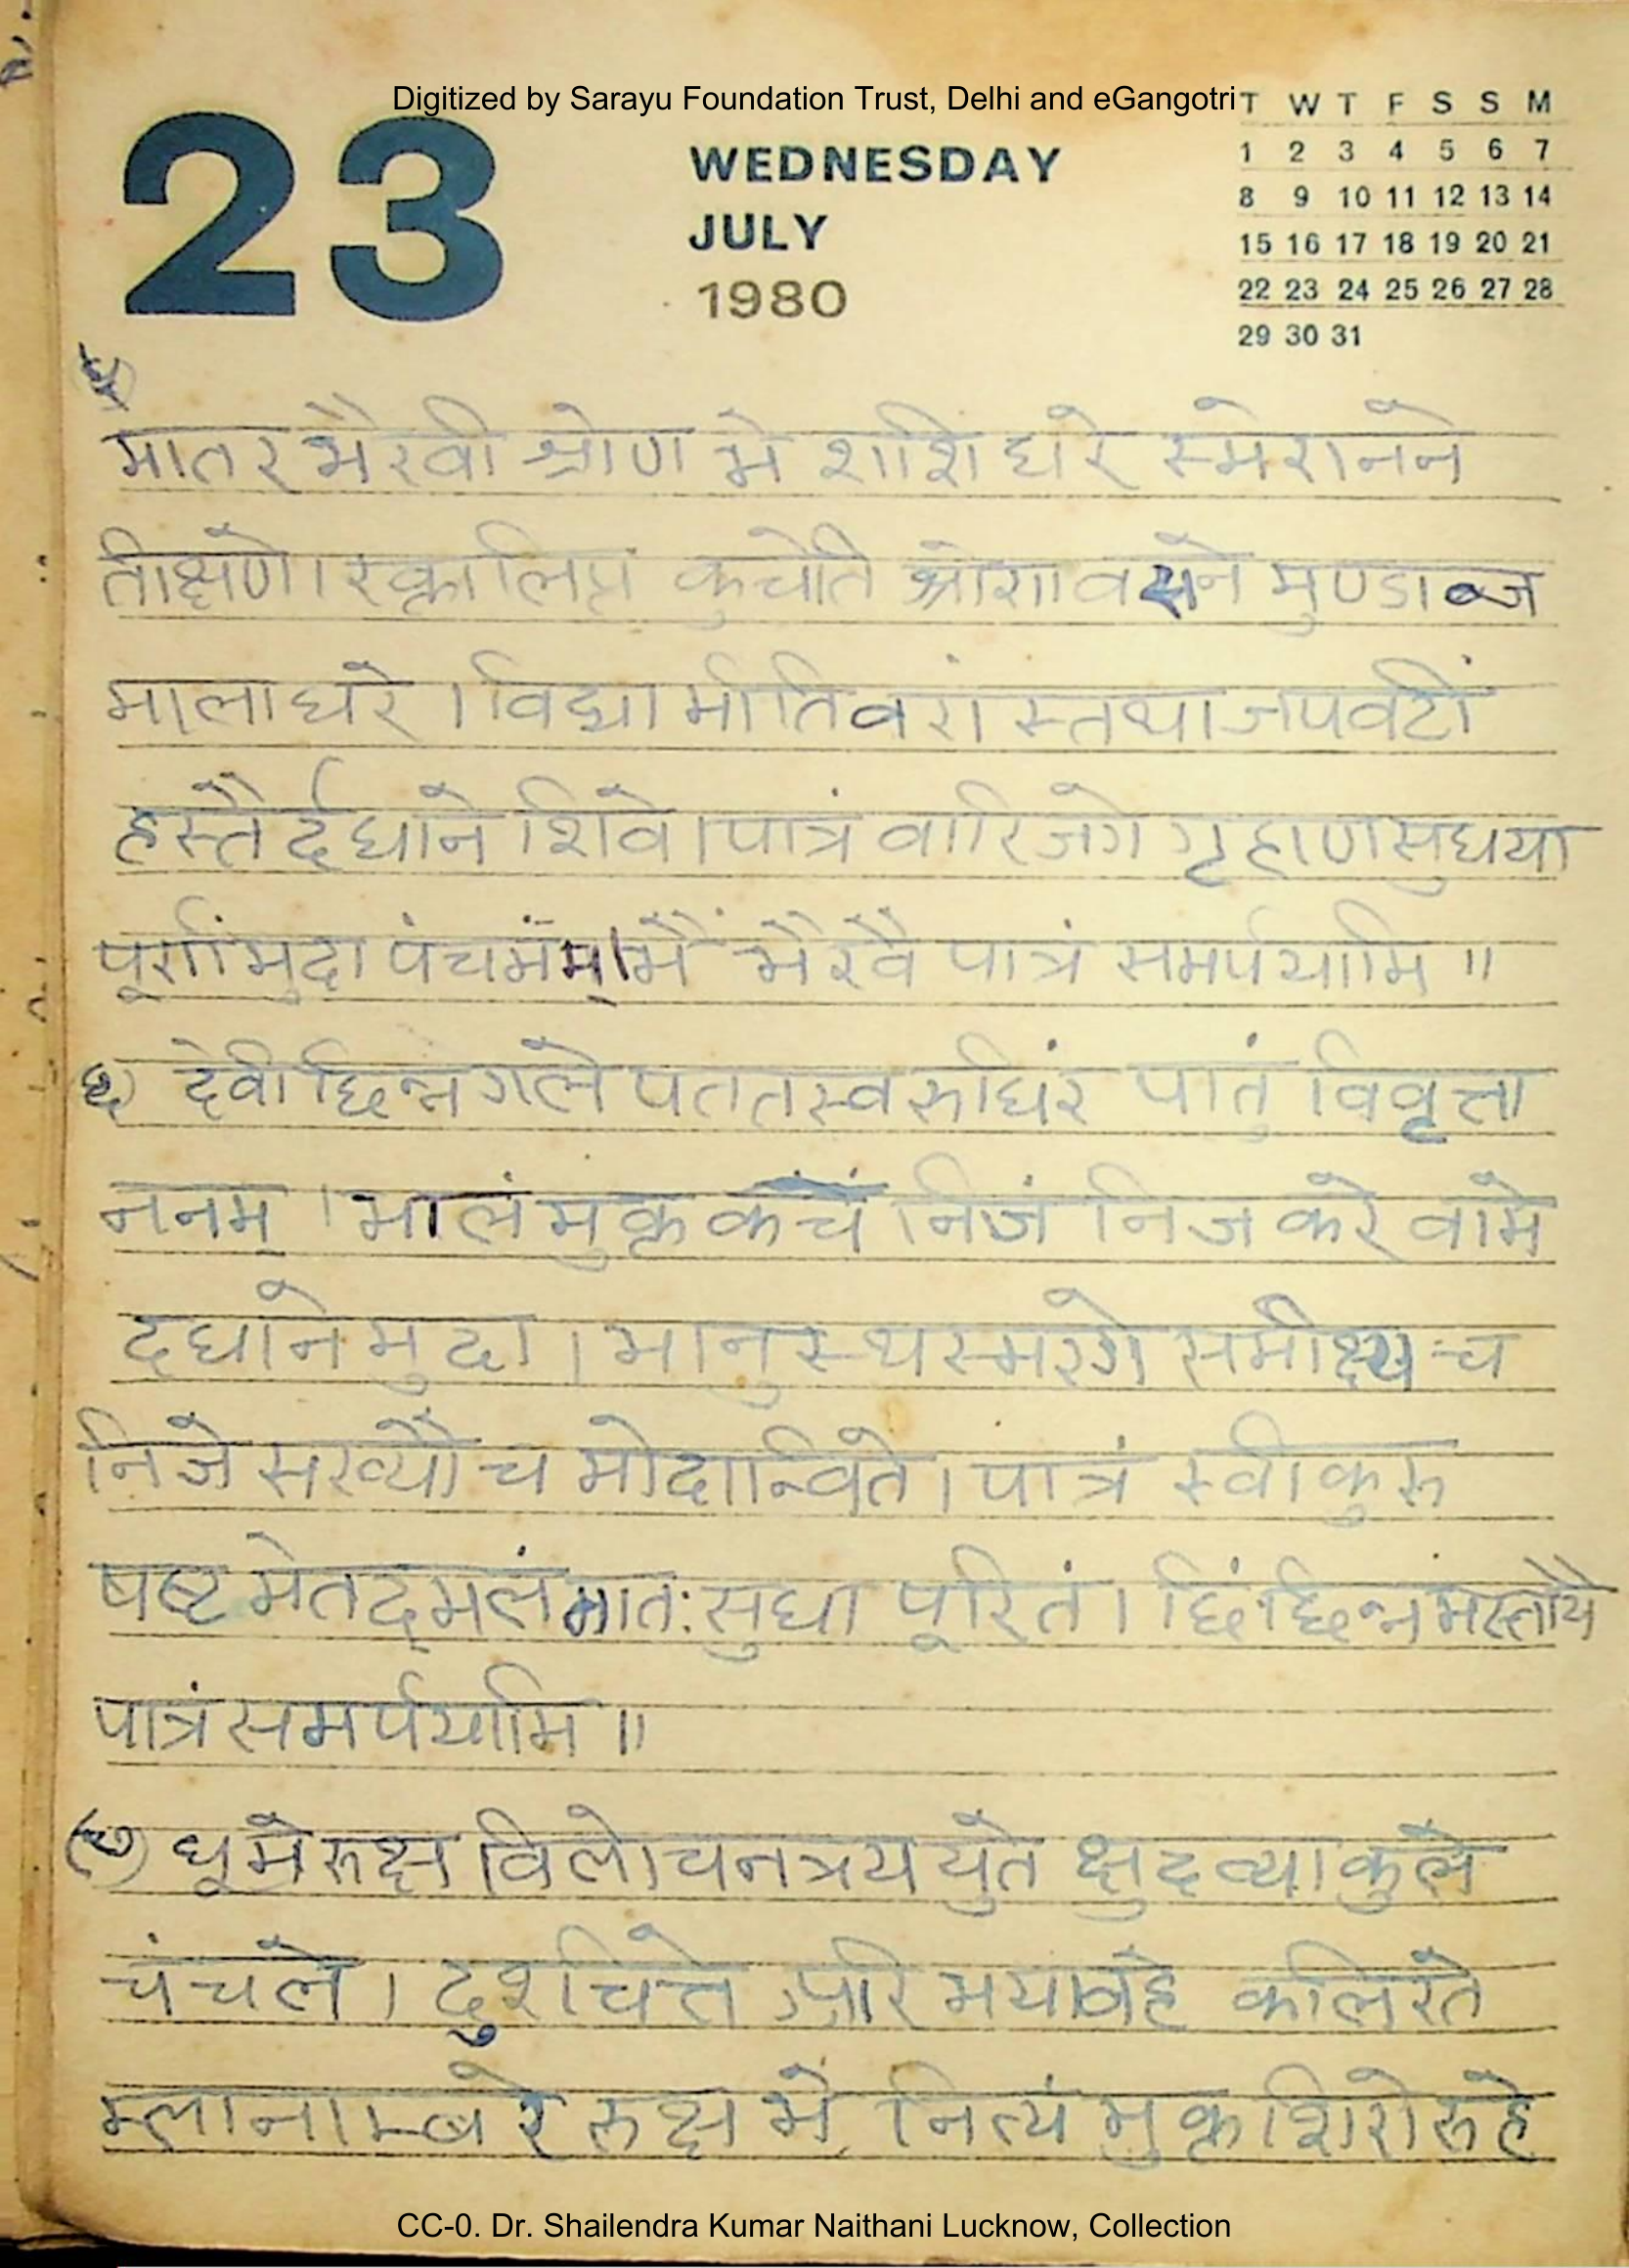 Digitized by Sarayu Foundation Trust, Delhi and eGangotri
23
WEDNESDAY
JULY
1980
T W T F S S M
1 2 3 4 5 6 7
8 9 10 11 12 13 14
15 16 17 18 19 20 21
22 23 24 25 26 27 28
29 30 31
मातर भैरवी श्रोण मे शशि धरे स्मेरानने
तीक्षणे । रक्तालिप्त कुचेति श्रोण वसने मुण्डाब्ज
मालाधरे । विद्या मीतिवरां स्तथा जपवटीं
हस्तैर्दधाने शिवे । पात्रं वारिजगे गृहाण सुधया
पूर्णांमुदा पंचमंम् । भैं भैरवै पात्रं समर्पयामि ॥
देवी छिन्न गले पततस्व रुधिरं पातुं विवृत्ता
ननम् । भालं मुक्त कचं निजं निज करे वामे
दधाने मुदा । भानुस्थस्मरगे समीक्ष्य च
निजे सख्यौ च मोदान्विते । पात्रं स्वीकुरु
षष्ट मेतद्मलं मातः सुधा पूरितं । छिं छिन्नमस्तायै
पात्रं समर्पयामि ॥
(७) धूमे रुक्ष विलोचनत्रय युते क्षुद व्याकुले
चंचले । दुश्चित्ते अरि भयावहे कलिरते
म्लानाम्बरे रुक्ष भे नित्यं मुक्त शिरोरुहे
CC-0. Dr. Shailendra Kumar Naithani Lucknow, Collection